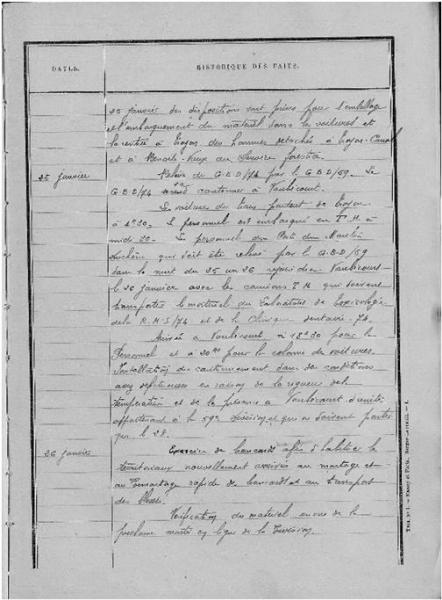 DATES.
HISTORIQUE DES FAITS.
25 janvier des dispositions sont prises pour l'emballage
et l'embarquement du matériel dans les voitures et
la rentrée à des hommes détachés à
et à au Service forestier
25 janvier
Relève du GBD/74 par le GBD/59. Le
GBD/74 cantonner à Vaubécourt.
Les voitures du train partent de
à 4h30. Le personnel est embarqué en T.M. à
midi 20. Le personnel du Poste du
qui doit être relevé par le GBD/59
dans la nuit du 25 au 26 rejoindra Vaubécourt
le 26 janvier avec les camions T.M. qui doivent
transporter le matériel du Laboratoire de toxicologie
de la R.M.S/74 et de la Clinique dentaire 74.
Arrivée à Vaubécourt à 18h30 pour le
Personnel et à 20h pour la colonne de voitures.
Installation du cantonnement dans des conditions
assez défectueuses en raison de la rigueur de la
température et de la présence à Vaubécourt d'unités
appartenant à la 59e Division et qui ne doivent partir
que le 28.
26 janvier
Exercice de brancards afin d'habituer les
territoriaux nouvellement arrivés au montage et
au démontage rapide de brancard et au transport
des blessés.
Vérification du matériel en vue de la
prochaine montée en ligne de la Division.